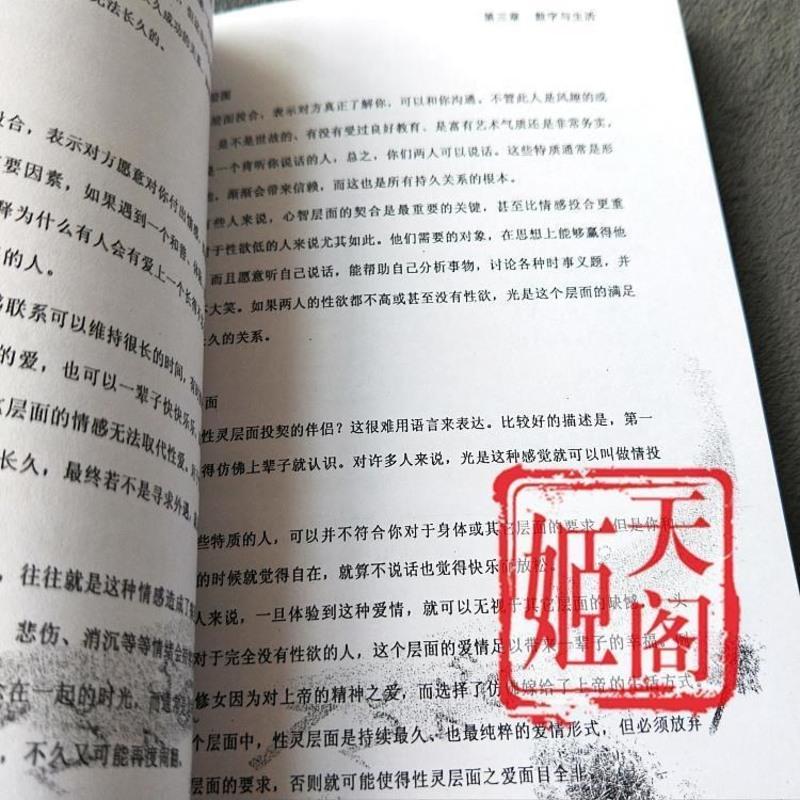 法长久的。
合，表示对方愿意对你付出
要因素，如果遇到一个和善、
择为什么有人会有爱上一个长
的人。
联系可以维持很长的时间，
的爱，也可以一辈子快快乐乐，
层面的情感无法取代性爱，
长久，最终若不是寻求外遇，
，往往就是这种情感造成了
悲伤、消沉等等情绪会
在一起的时光，而
，不久又可能再度
第三章 数字与生活
面
面投合，表示对方真正了解你，可以和你沟通。不管此人是风趣的或
是不是世故的、有没有受过良好教育、是富有艺术气质还是非常务实，
是一个肯听你说话的人，总之，你们两人可以说话。这些特质通常是形
，渐渐会带来信赖，而这也是所有持久关系的根本。
些人来说，心智层面的契合是最重要的关键，甚至比情感投合更重
对于性欲低的人来说尤其如此。他们需要的对象，在思想上能够赢得他
而且愿意听自己说话，能帮助自己分析事物，讨论各种时事义题，并
大笑。如果两人的性欲都不高或甚至没有性欲，光是这个层面的满足
久的关系。
面
性灵层面投契的伴侣？这很难用语言来表达。比较好的描述是，第一
得仿佛上辈子就认识。对许多人来说，光是这种感觉就可以叫做情投
些特质的人，可以并不符合你对于身体或其它层面的要求，但是你和
的时候就觉得自在，就算不说话也觉得快乐放松。
人来说，一旦体验到这种爱情，就可以无视于其它层面的缺憾。
对于完全没有性欲的人，这个层面的爱情足以带来一辈子的幸福。
修女因为对上帝的精神之爱，而选择了仿佛嫁给了上帝的生活方式。
个层面中，性灵层面是持续最久、也最纯粹的爱情形式，但必须放弃
层面的要求，否则就可能使得性灵层面之爱面目全非。
天阁
姬